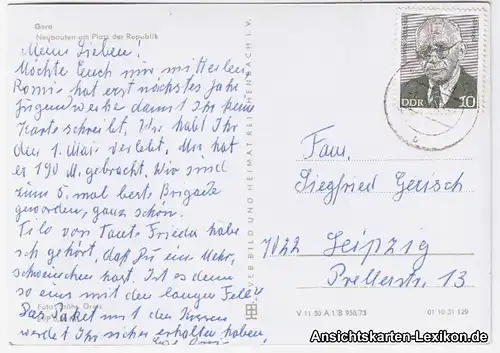 Gera
Neubauten am Platz der Republik
Meine Lieben!
Möchte Euch nur mitteilen
Romi hat erst nächstes Jahr
Jugendweihe damit Ihr keine
Karte schreibt. Wie habt Ihr
den 1. Mai verlebt. Mir hat
er 190 M. gebracht. Wir sind
zum 5. mal beste Brigade
geworden, ganz schön.
Tilo von Tante Frieda habe
ich gehört, daß Du ein Meer-
schweinchen hast. Ist es denn
so eins mit den langen Fell?
Das Paket mit den
werdet Ihr sicher erhalten haben,
VEB BILD UND HEIMAT REICHENBACH I. V.
DDR 10
Fam.
Siegfried Gersch
7022 Leipzig
Prellerstr. 13
V 11 50 A 1/B 956/73
01 10 31 129
Ansichtskarten-Lexikon.de